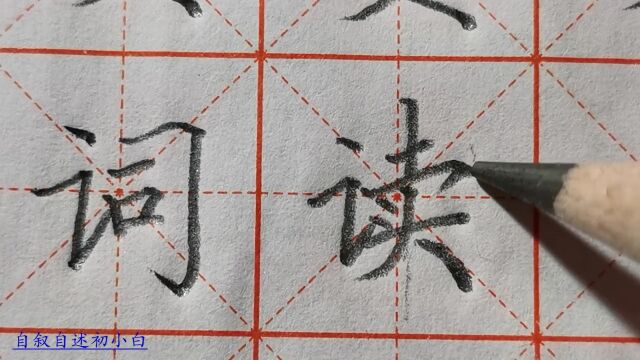 词读
自叙自述初小白